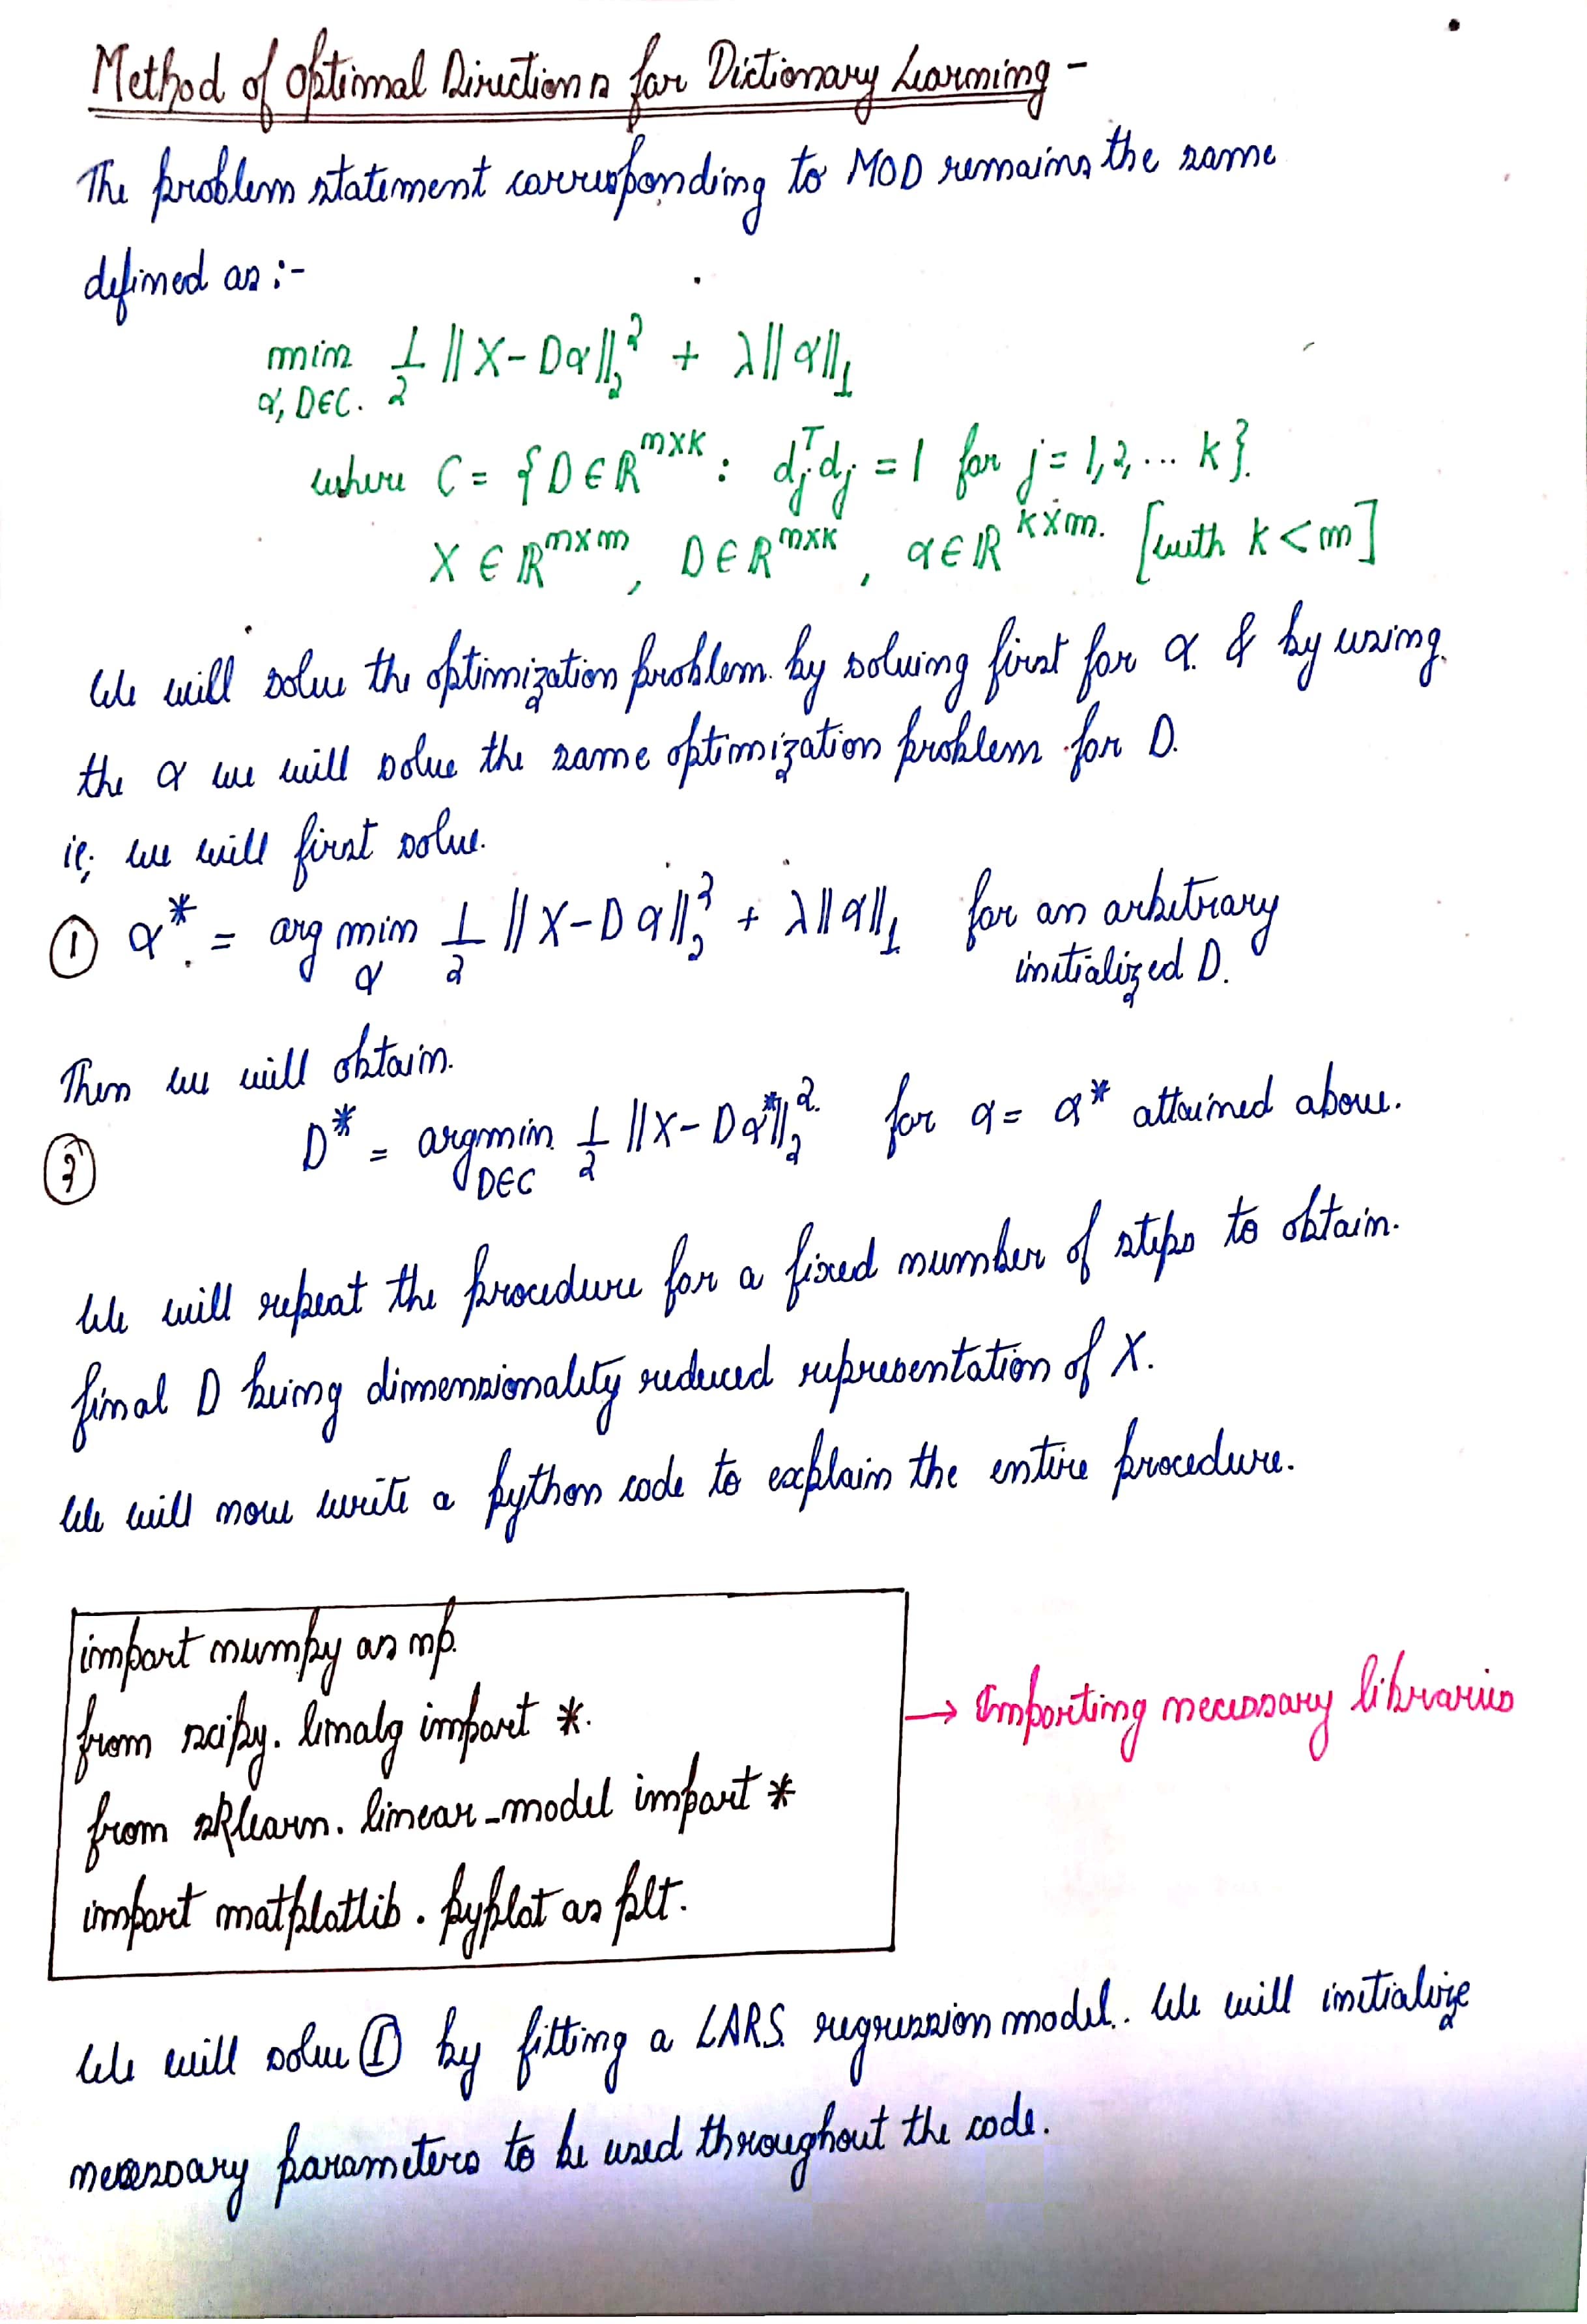 Method of Optimal Directions for Dictionary Learning -
The problem statement corresponding to MOD remains the same
defined as :-
min 1/2 ||X - Dα||₂² + λ||α||₁
α, D∈C.
where C = {D ∈ ℝ^{m×k} : dⱼᵀdⱼ = 1 for j = 1, 2, ... k}.
X ∈ ℝ^{m×n}, D ∈ ℝ^{m×k}, α ∈ ℝ^{k×n}. [with k < n]
We will solve the optimization problem. by solving first for α. & by using.
the α we will solve the same optimization problem for D.
ie; we will first solve.
① α* = arg min_α 1/2 ||X - Dα||₂² + λ||α||₁ for an arbitrary
initialized D.
Then we will obtain.
② D* = argmin_{D∈C} 1/2 ||X - Dα*||₂² for α = α* attained above.
We will repeat the procedure for a fixed number of steps to obtain.
final D being dimensionality reduced representation of X.
We will now write a python code to explain the entire procedure.
import numpy as np.
from scipy. linalg import *.
from sklearn. linear_model import *
import matplotlib . pyplot as plt.
→ Importing necessary libraries
We will solve ① by fitting a LARS. regression model.. We will initialize
necessary parameters to be used throughout the code.